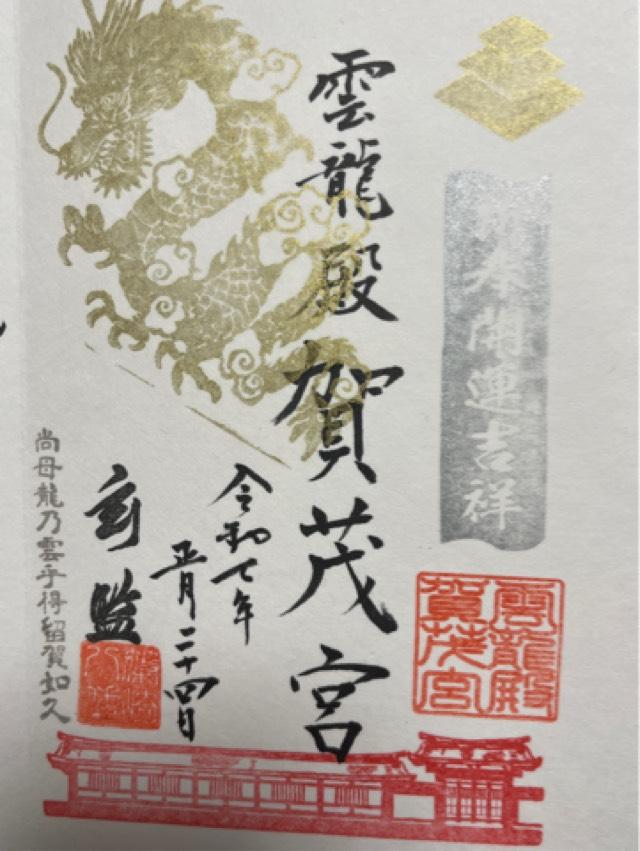 開運吉祥
雲龍殿
賀茂宮
雲龍殿賀茂宮
令和七年
正月二十四日
監
尚母龍乃雲乎得留賀如久